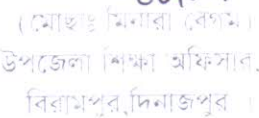 (মোছাঃ মিনারা বেগম)
উপজেলা শিক্ষা অফিসার,
বিরামপুর, দিনাজপুর ।